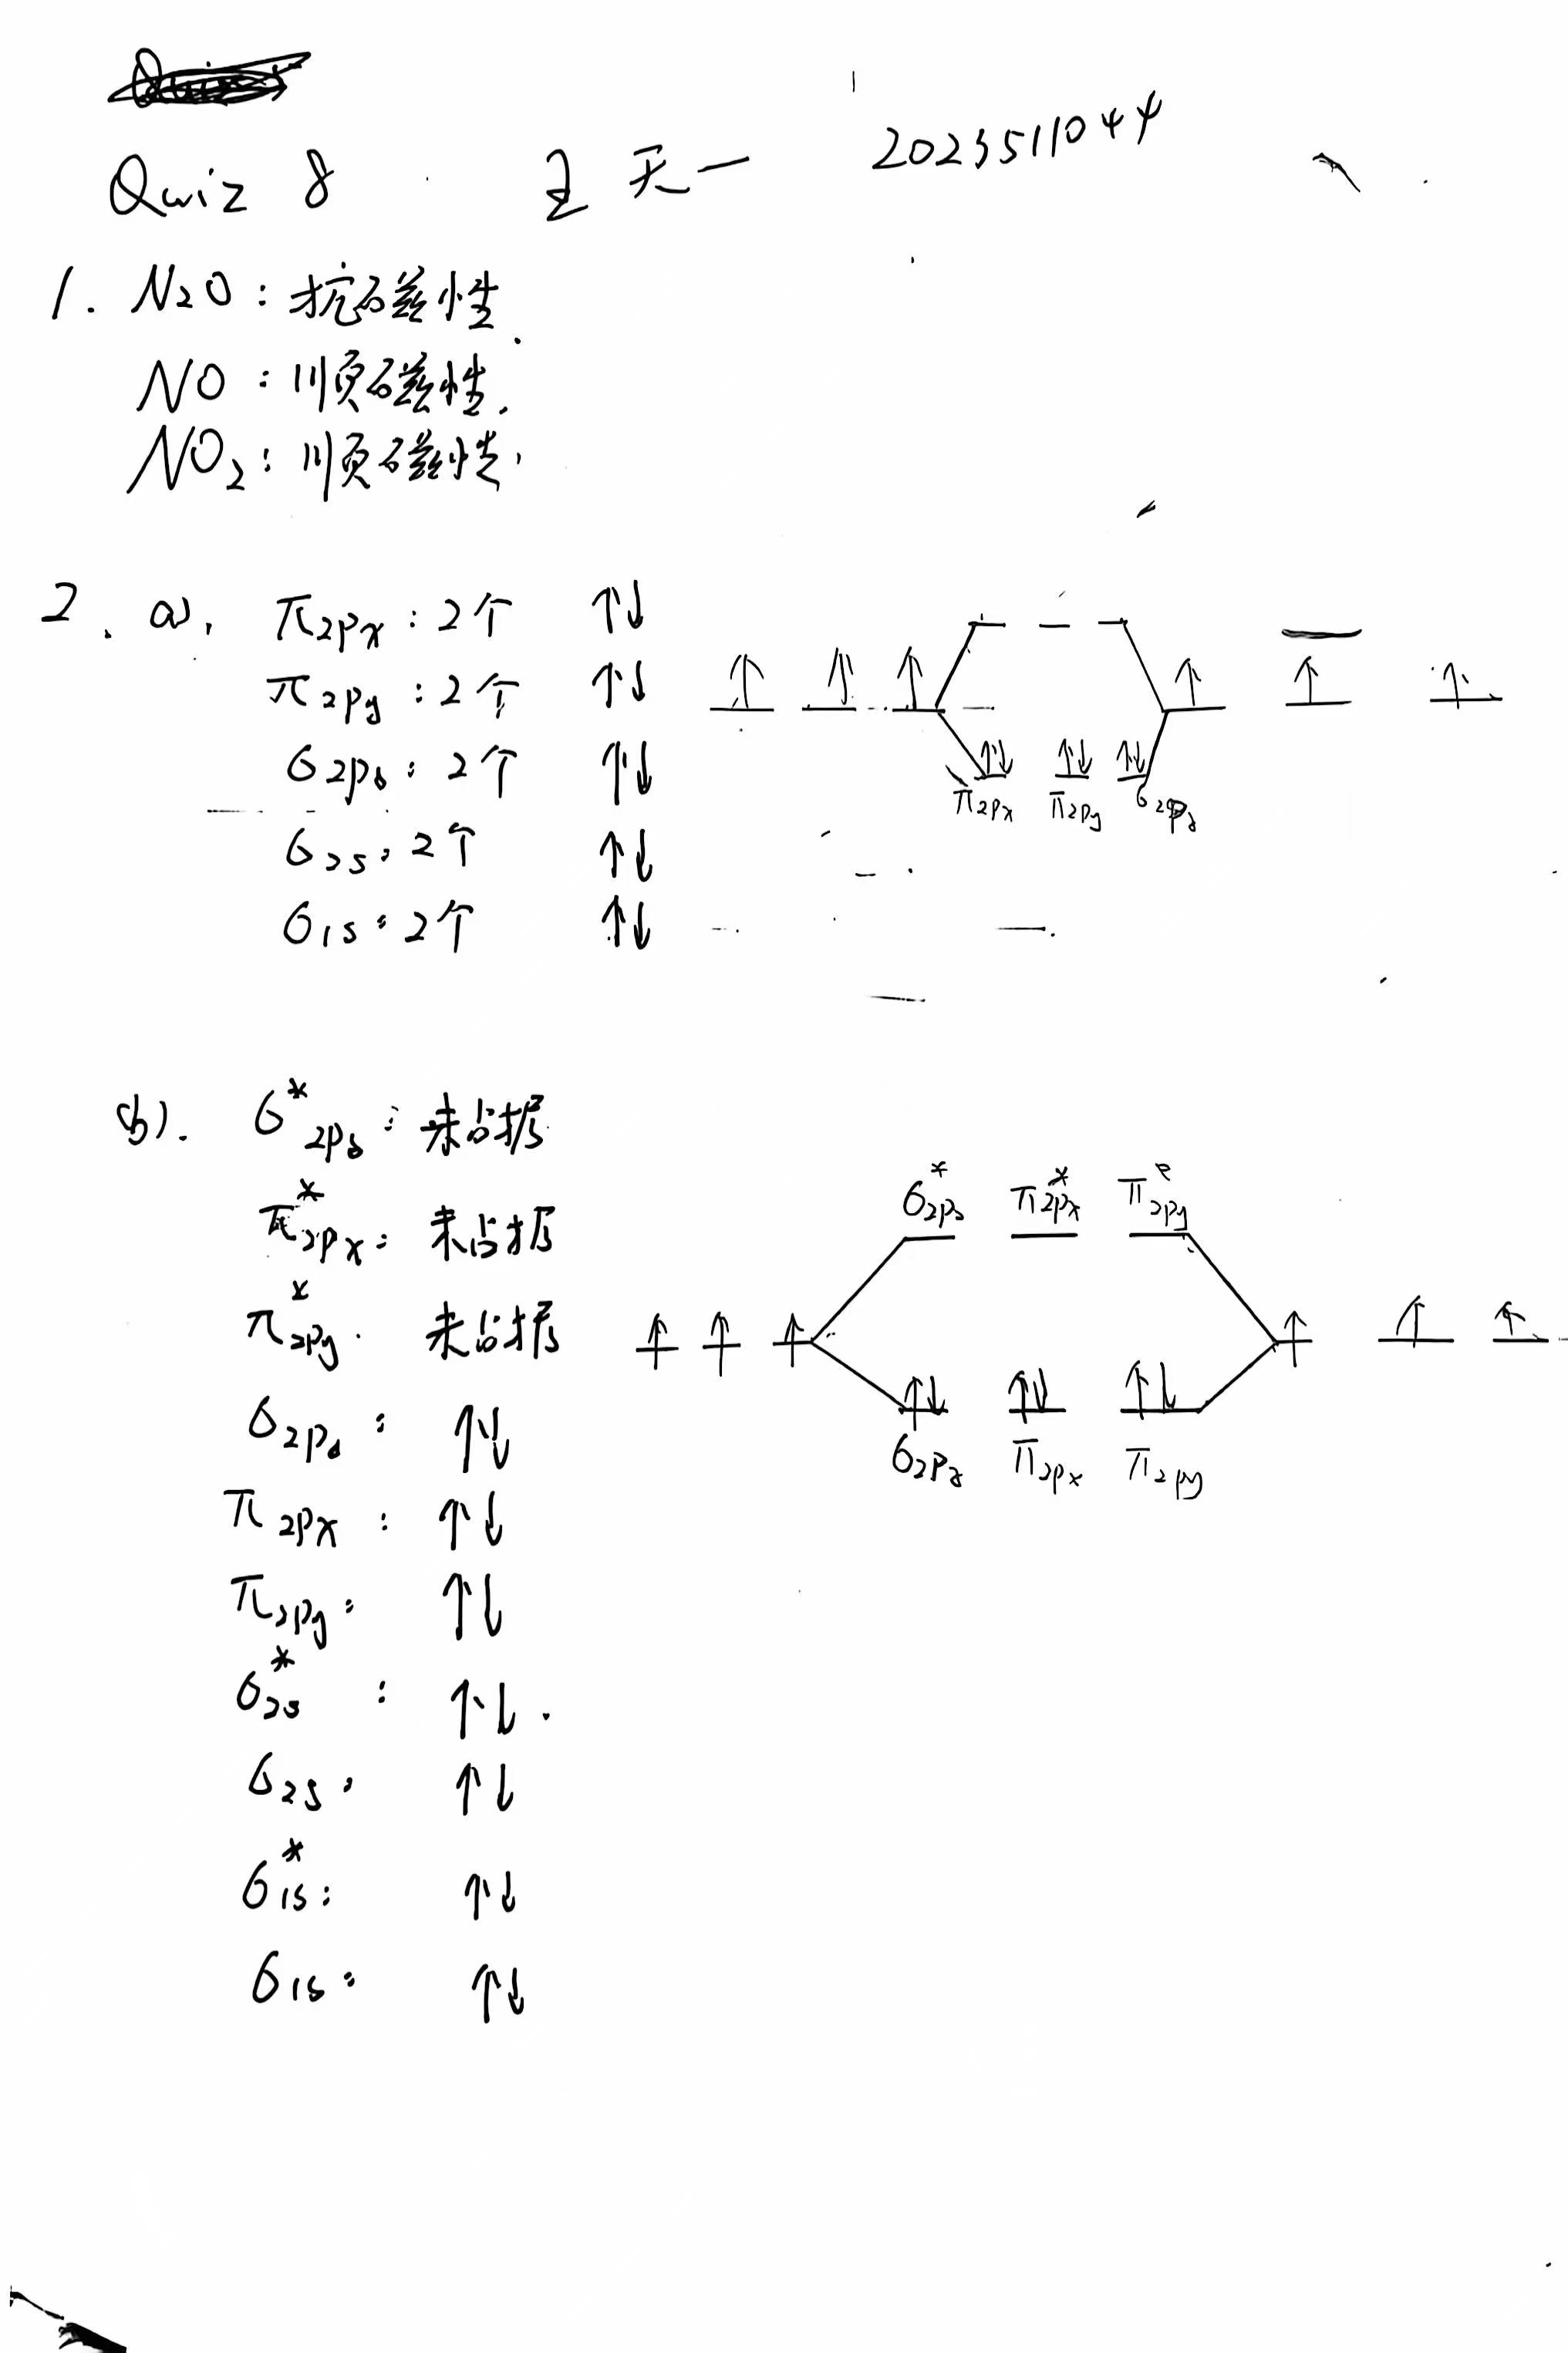 Quiz 8 王天一 2023511044
1. N₂O：抗磁性.
NO：顺磁性.
NO₂：顺磁性.
2. a). π2px：2个 ↑↓
π2py：2个 ↑↓
σ2pz：2个 ↑↓
σ2s：2个 ↑↓
σ1s：2个 ↑↓
↑ ↑ ↑ ↑ ↑ ↑
↑↓ ↑↓ ↑↓
π2px π2py σ2pz
b). σ*2pz：未占据
π*2px：未占据
π*2py. 未占据
σ2pz：↑↓
π2px：↑↓
π2py：↑↓
σ*2s：↑↓.
σ2s：↑↓
σ*1s：↑↓
σ1s：↑↓
σ*2pz π*2px π*2py
↑ ↑ ↑ ↑ ↑ ↑
↑↓ ↑↓ ↑↓
σ2pz π2px π2py